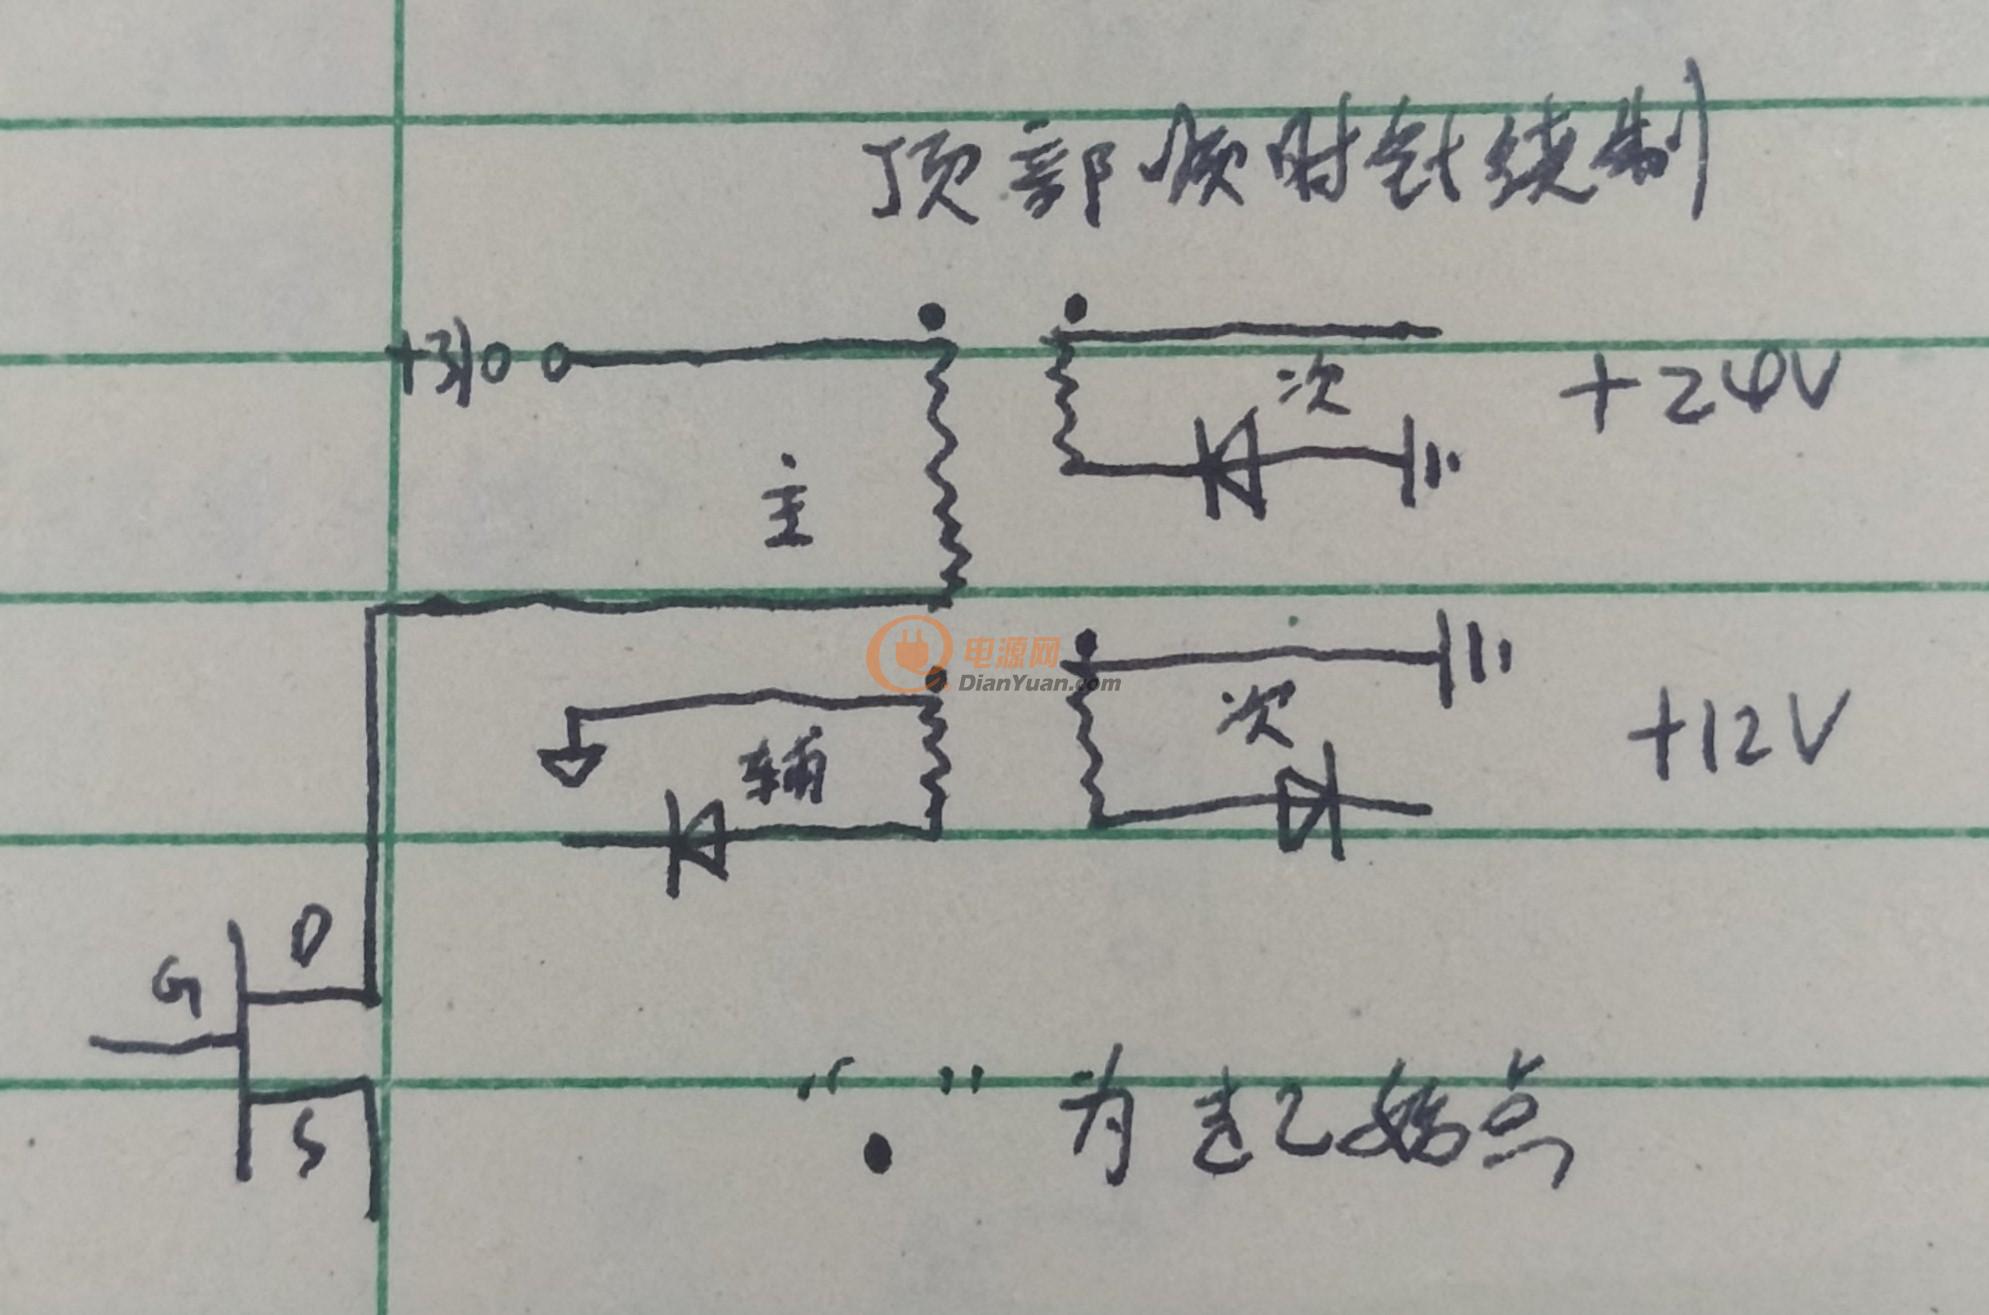 顶部顺时针绕制
+310
次
+24V
主
电源网
DianYuan.com
次
+12V
辅
D
G
S
“•”为起始点